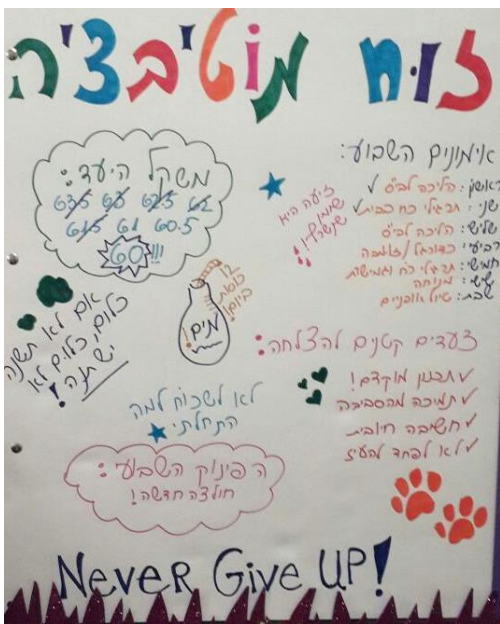 לוח מוטיבציה
אימונים השבוע:
ראשון: הליכה לב"ס ✓
שני: תרגילי כח בבית ✓
שלישי: הליכה לב"ס
רביעי: כדורגל/זומבה
חמישי: תרגילי כח וגמישות
שישי: מנוחה
שבת: טיול אופניים
משקל היעד:
63.5 63 62.5 62
61.5 61 60.5
60!!!
זיעה היא
שומן
שנשרף!
12
כוסות
ביום!
מים!
אם לא תשנה
כלום, כלום לא
ישתנה!
צעדים קטנים להצלחה:
✓ תכנון מוקדם!
✓ תמיכה מהסביבה
✓ חשיבה חיובית
✓ לא לפחד להעיז
לא לשכוח למה
התחלתי
הפינוק השבועי:
חולצה חדשה!
Never Give UP!